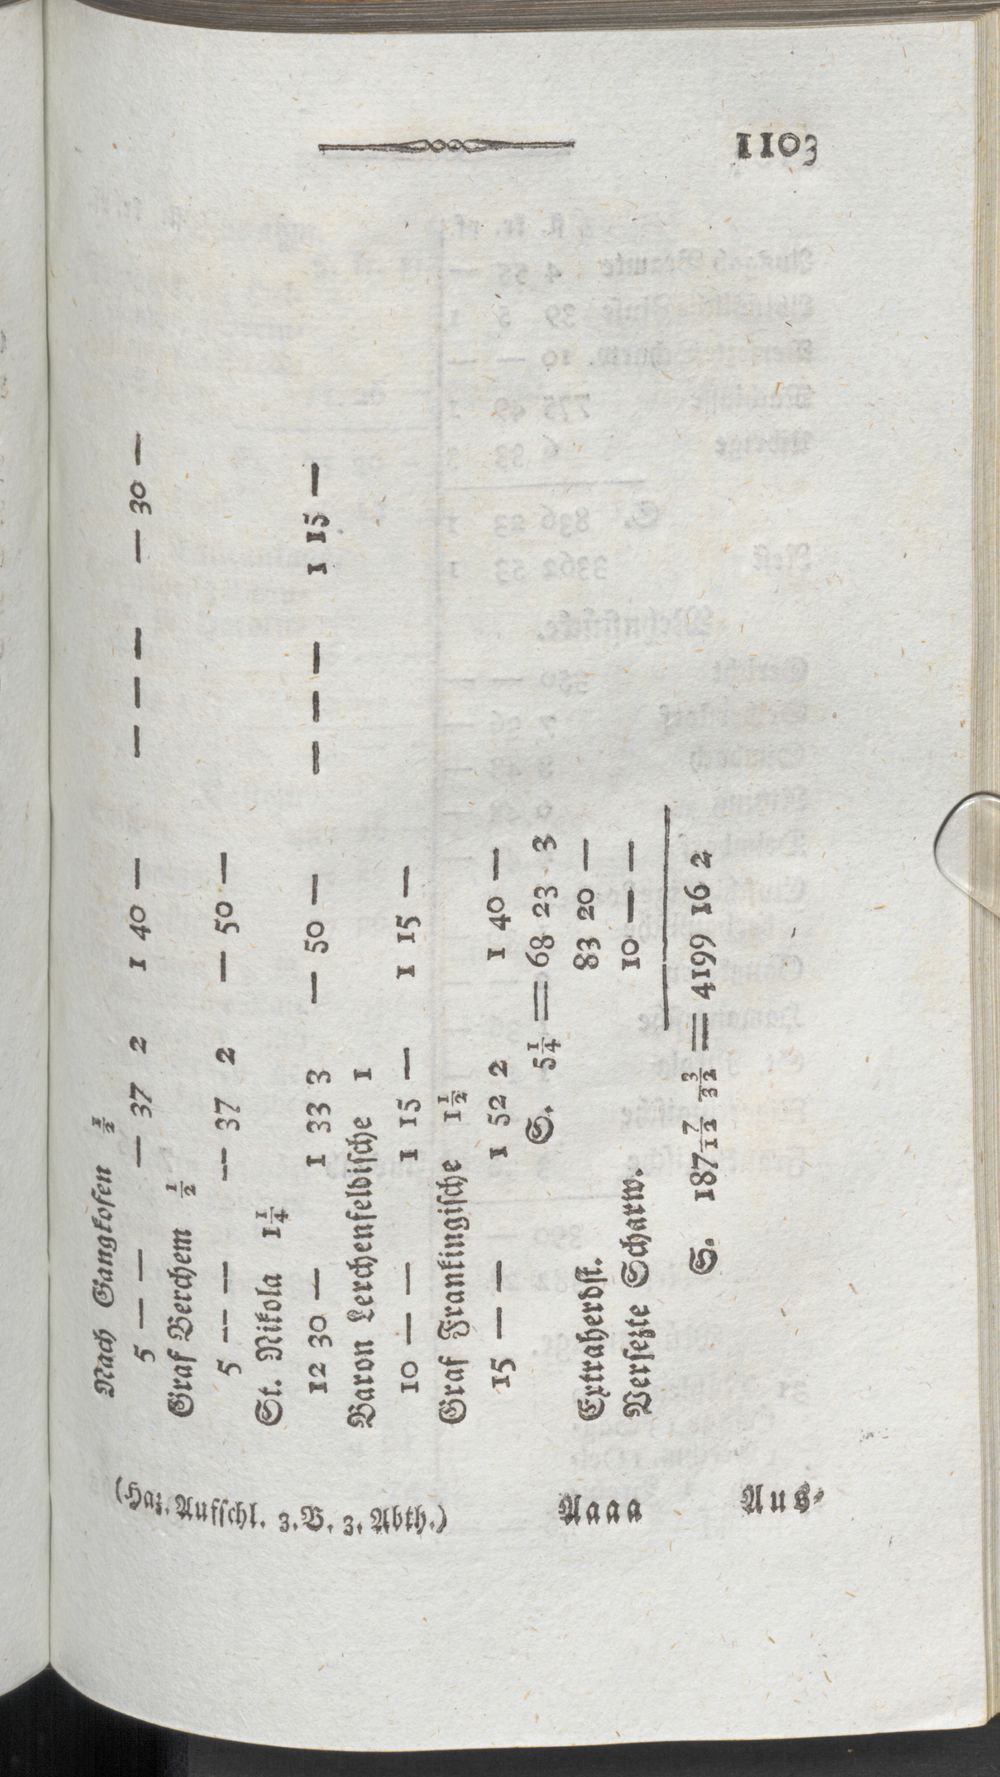 1103
Nach Gangkofen ½
5 — — — 37 2 1 40 — — — — — 30 —
Graf Berchem ½
5 — — — 37 2 — 50 —
St. Nikola 1¼
12 30 — 1 33 3 — 50 — — — — 1 15 —
Baron Lerchenfeldische 1
10 — — 1 15 — 1 15 —
Graf Frankingische 1½
15 — — 1 52 2 1 40 —
S. 5¼ = 68 23 3
Extraherdst. 83 20 —
Versezte Scharw. 10 — —
S. 187 7/12 3/32 = 4199 16 2
(Haz. Aufschl. 3. B. 3. Abth.) Aaaa Aus⸗